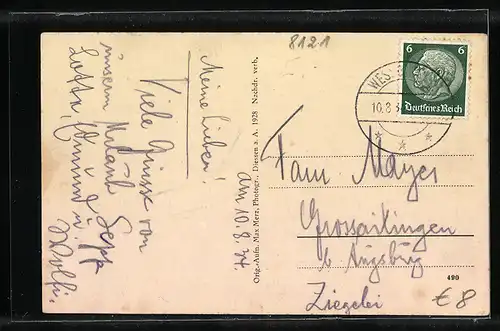 8121
Meine Lieben!
Viele Grüsse von
unserm Urlaub
Lotte,
Sepp
u.
Wolfi.
am 10.8.34.
Orig.-Aufn. Max Merz, Photogr., Diessen a. A. 1928 Nachdr. verb.
6 6
Deutsches Reich
WES
10.8.3
* * *
Fam. Mayer
Grossaitingen
b. Augsburg
Ziegelei
490
€8